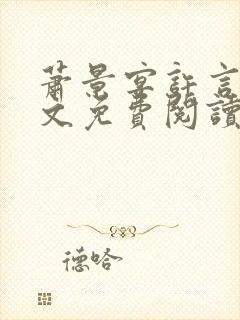 蕭景宴許言
文免費閱讀
德哈